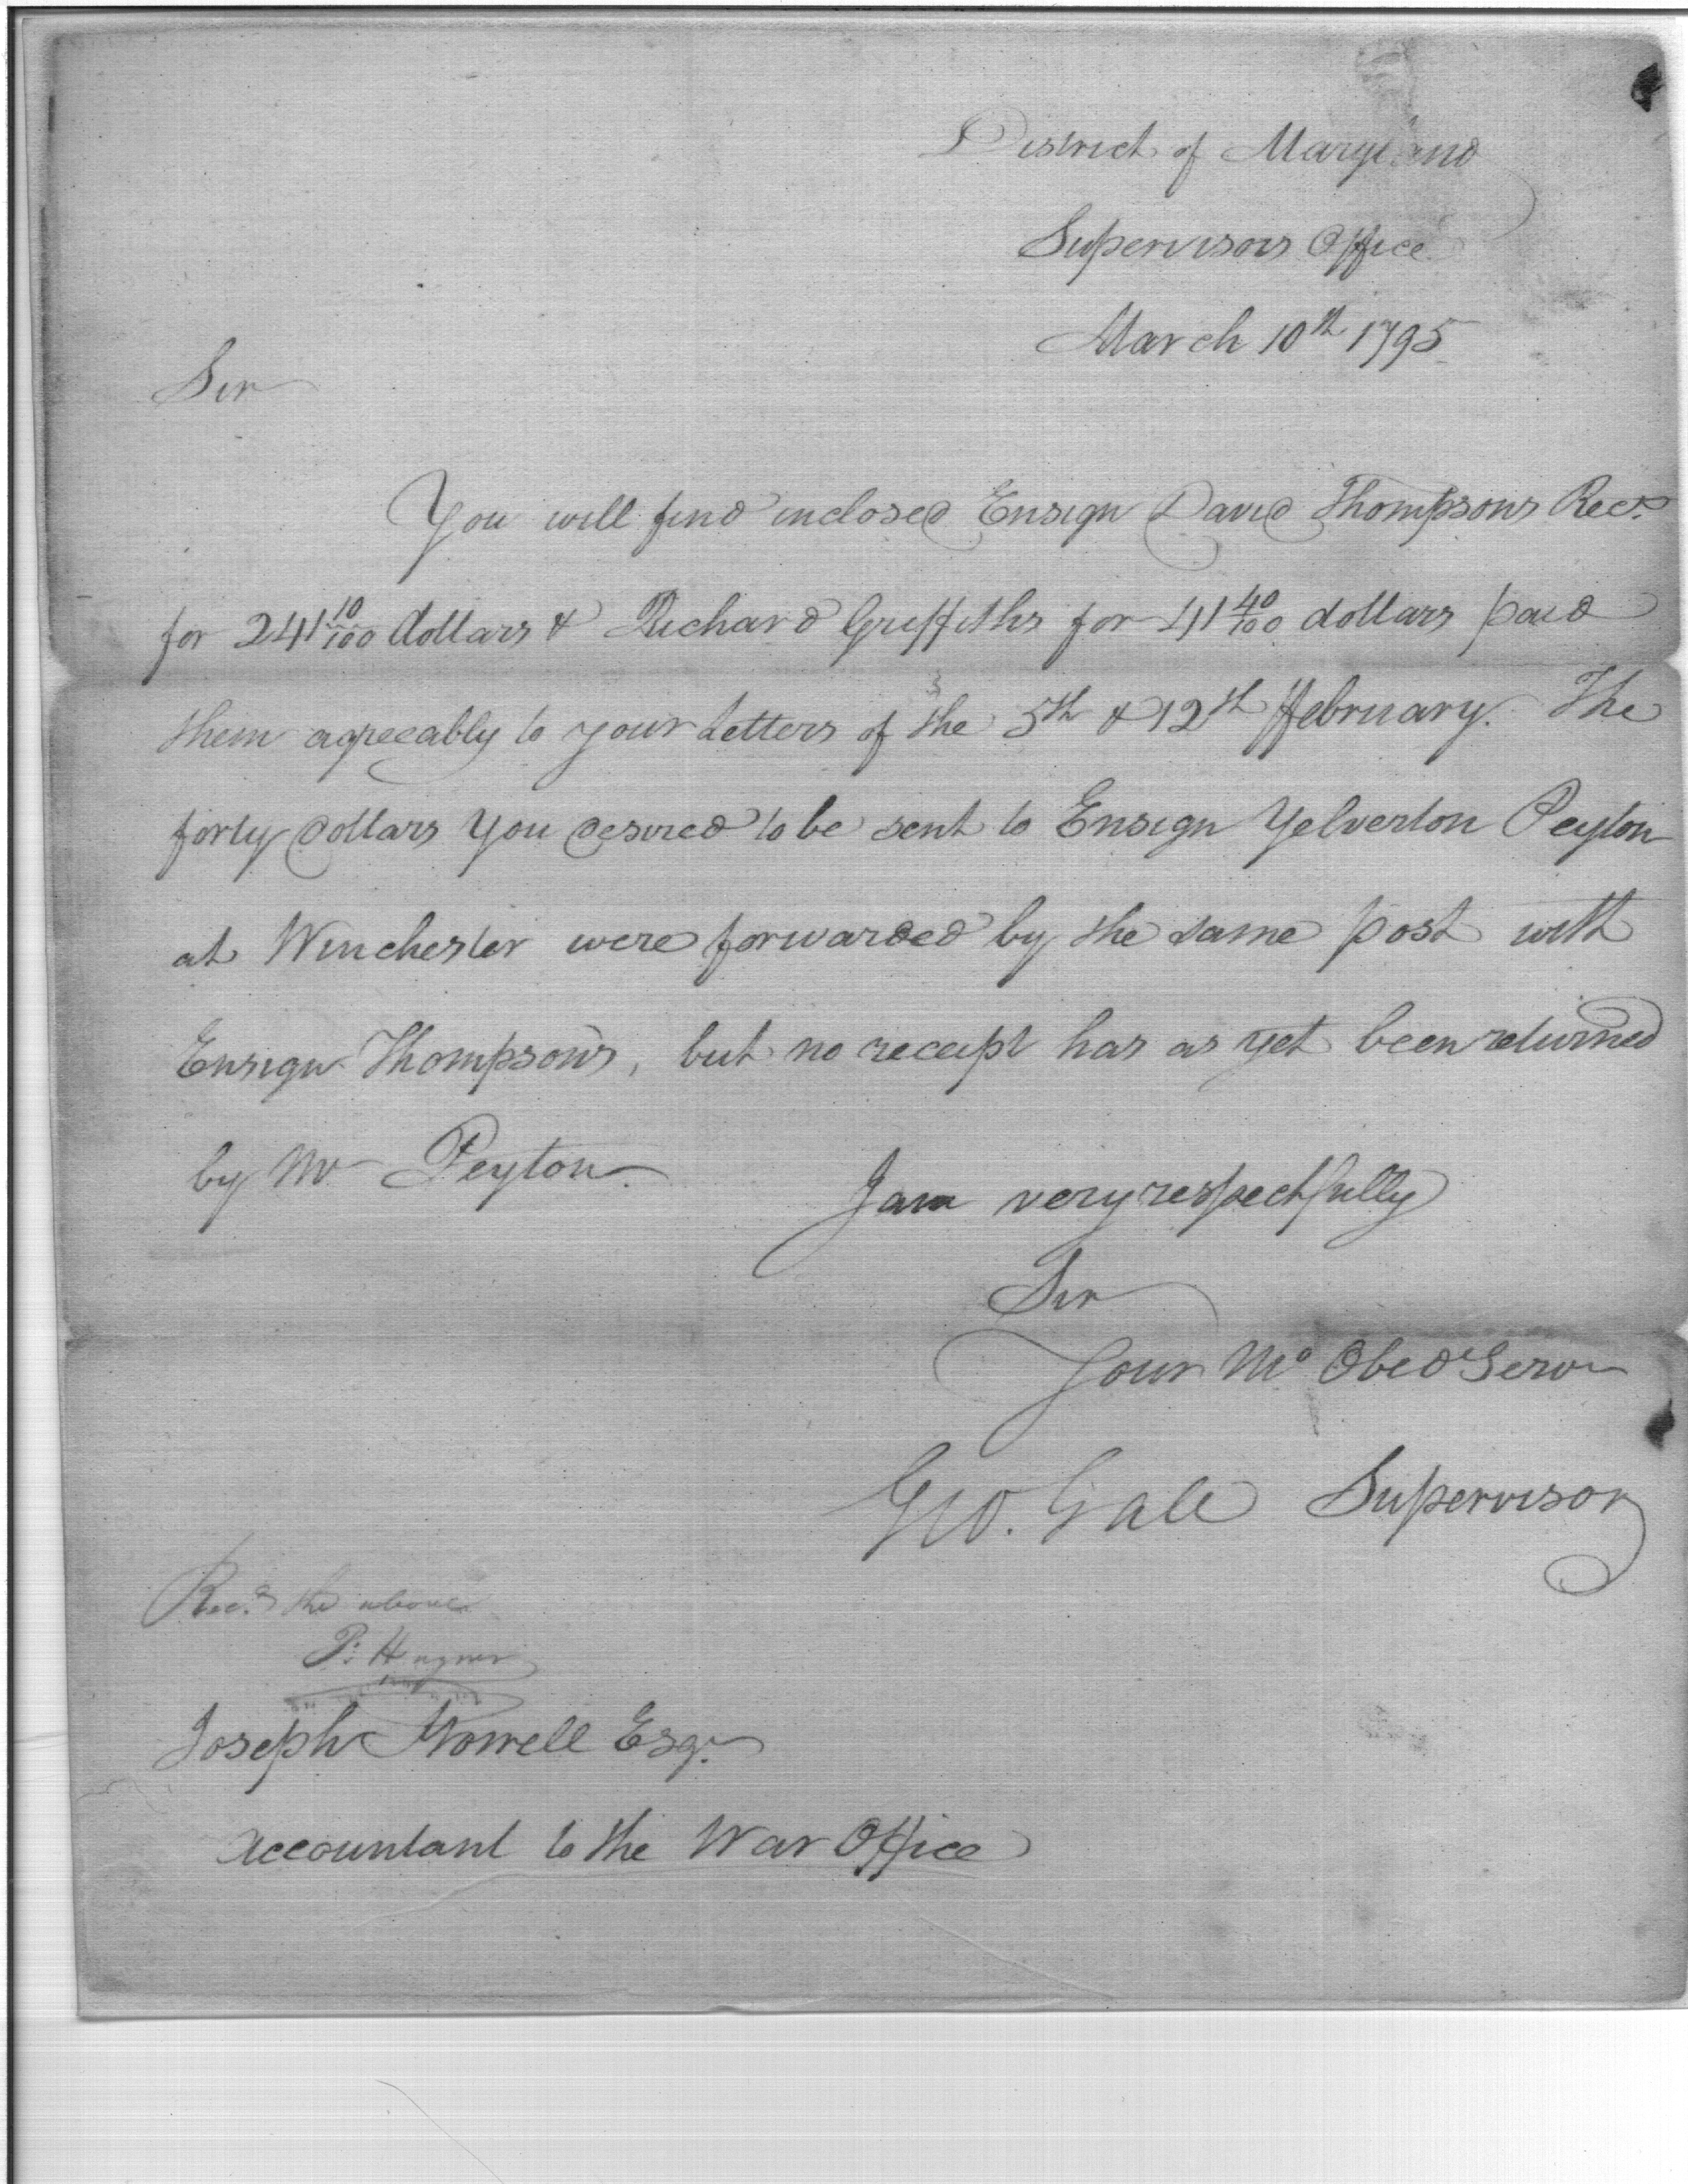 District of Maryland
Supervisors Office
March 10th 1795
Sir
You will find inclosed Ensign David Thompsons Rect.
for 241 10/100 dollars & Richard Griffiths for 41 40/100 dollars paid
them agreeably to your Letters of the 5th & 12th ffebruary. The
forty dollars you desired to be sent to Ensign Yelverton Peyton
at Winchester were forwarded by the same post with
Ensign Thompsons, but no receipt has as yet been returned
by Mr Peyton.
I am very respectfully
Sir
Your Mo Obed Serv
Geo. Gale Supervisor
Rec.d the above
P: Hagner
Joseph Howell Esqr.
Accountant to the War Office